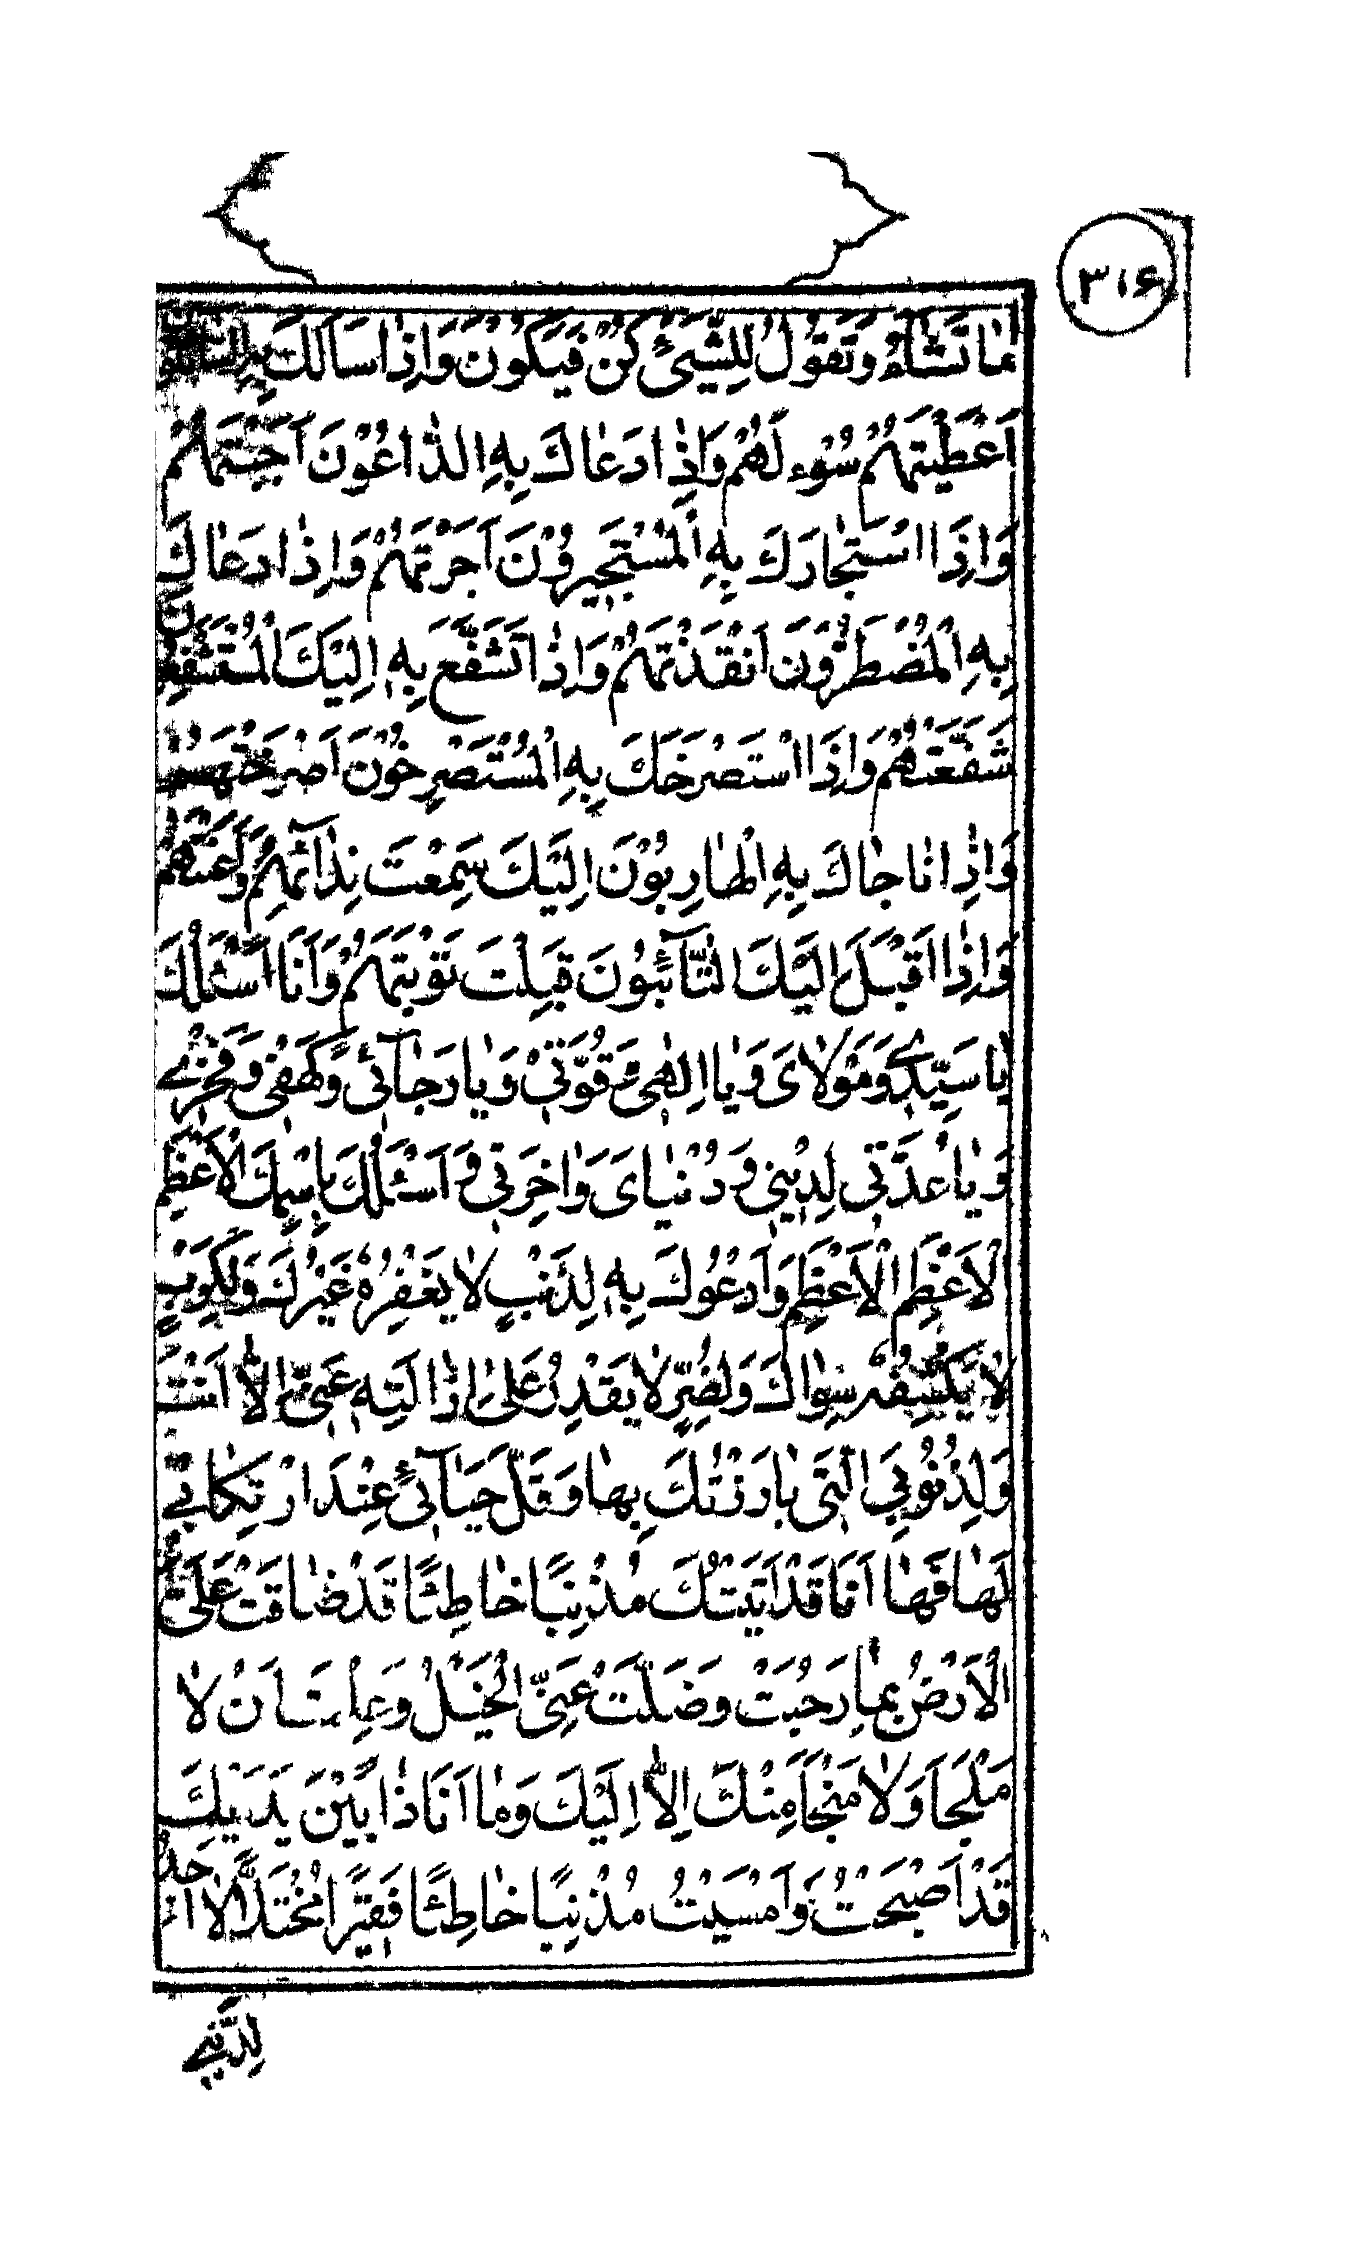 ۳۱۶
مٰا تَشٰآءُ وَتَقُوْلُ لِلشَّیْئِ كُنْ فَیَكُوْنُ وَاِذٰا سَاَلَكَ بِهِ السّٰآئِلُوْنَ
اَعْطَیْتَهُمْ سُؤْلَهُمْ وَاِذٰا دَعٰاكَ بِهِ الدّٰاعُوْنَ اَجَبْتَهُمْ
وَاِذَا اسْتَجٰارَكَ بِهِ الْمُسْتَجِیْرُوْنَ اَجَرْتَهُمْ وَاِذٰا دَعٰاكَ
بِهِ الْمُضْطَرُّوْنَ اَنْقَذْتَهُمْ وَاِذٰا تَشَفَّعَ بِهٖ اِلَیْكَ الْمُتَشَفِّعُوْنَ
شَفَّعْتَهُمْ وَاِذَا اسْتَصْرَخَكَ بِهِ الْمُسْتَصْرِخُوْنَ اَصْرَخْتَهُمْ
وَاِذٰا نٰاجٰاكَ بِهِ الْهٰارِبُوْنَ اِلَیْكَ سَمِعْتَ نِدٰآئَهُمْ وَاَعَنْتَهُمْ
وَاِذٰا اَقْبَلَ اِلَیْكَ التّٰآئِبُوْنَ قَبِلْتَ تَوْبَتَهُمْ وَاَنَا اَسْئَلُكَ
یٰا سَیِّدِیْ وَمَوْلَایَ وَیٰا اِلٰهِیْ وَ قُوَّتِیْ وَیٰا رَجٰآئِیْ وَكَهْفِیْ وَفَخْرِیْ
وَیٰا عُدَّتِیْ لِدِیْنِیْ وَدُنْیٰایَ وَاٰخِرَتِیْ وَ اَسْئَلُكَ بِاسْمِكَ الْاَعْظَمِ
الْاَعْظَمِ الْاَعْظَمِ وَاَدْعُوْكَ بِهٖ لِذَنْبٍ لٰا یَغْفِرُهٗ غَیْرُكَ وَلِكَرْبٍ
لٰا یَكْشِفُهٗ سِوٰاكَ وَلِضُرٍّ لٰا یَقْدِرُ عَلیٰ اِزٰالَتِهٖ عَنِّیْ اِلَّا اَنْتَ
وَلِذُنُوْبِیَ الَّتِیْ بٰارَزْتُكَ بِهٰا وَقَلَّ حَیٰآئِیْ عِنْدَ ارْتِكٰابِیْ
لَهٰا فَهٰا اَنَا قَدْ اَتَیْتُكَ مُذْنِبًا خٰاطِئًا قَدْ ضٰاقَتْ عَلَیَّ
الْاَرْضُ بِمٰا رَحُبَتْ وَضَلَّتْ عَنِّی الْحِیَلُ وَعَلِمْتُ اَنْ لٰا
مَلْجَأَ وَلٰا مَنْجَأَ مِنْكَ اِلَّا اِلَیْكَ وَمٰا اَنَا ذٰا بَیْنَ یَدَیْكَ
قَدْ اَصْبَحْتُ وَاَمْسَیْتُ مُذْنِبًا خٰاطِئًا فَقِیْرًا مُخْتَلًّا لٰا اَجِدُ
لِذَنْبِیْ